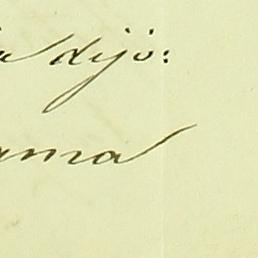 a dijo:
ama